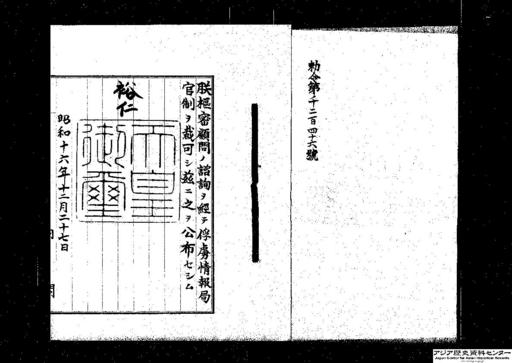 勅令第千二百四十六號
朕樞密顧問ノ諮詢ヲ經テ俘虜情報局
官制ヲ裁可シ茲ニ之ヲ公布セシム
裕仁
天皇御璽
昭和十六年十二月二十七日
アジア歴史資料センター
Japan Center for Asian Historical Records